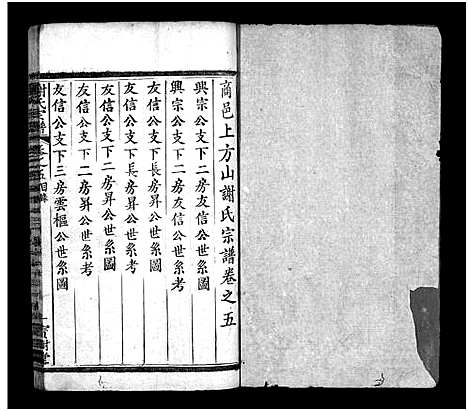 商邑上方山謝氏宗譜卷之五
興宗公支下二房友信公世系圖
興宗公支下二房友信公世系考
友信公支下長房昇公世系圖
友信公支下長房昇公世系考
友信公支下二房昇公世系圖
友信公支下二房昇公世系考
友信公支下三房雲樞公世系圖
謝氏宗譜 卷之五目錄 一 寶樹堂